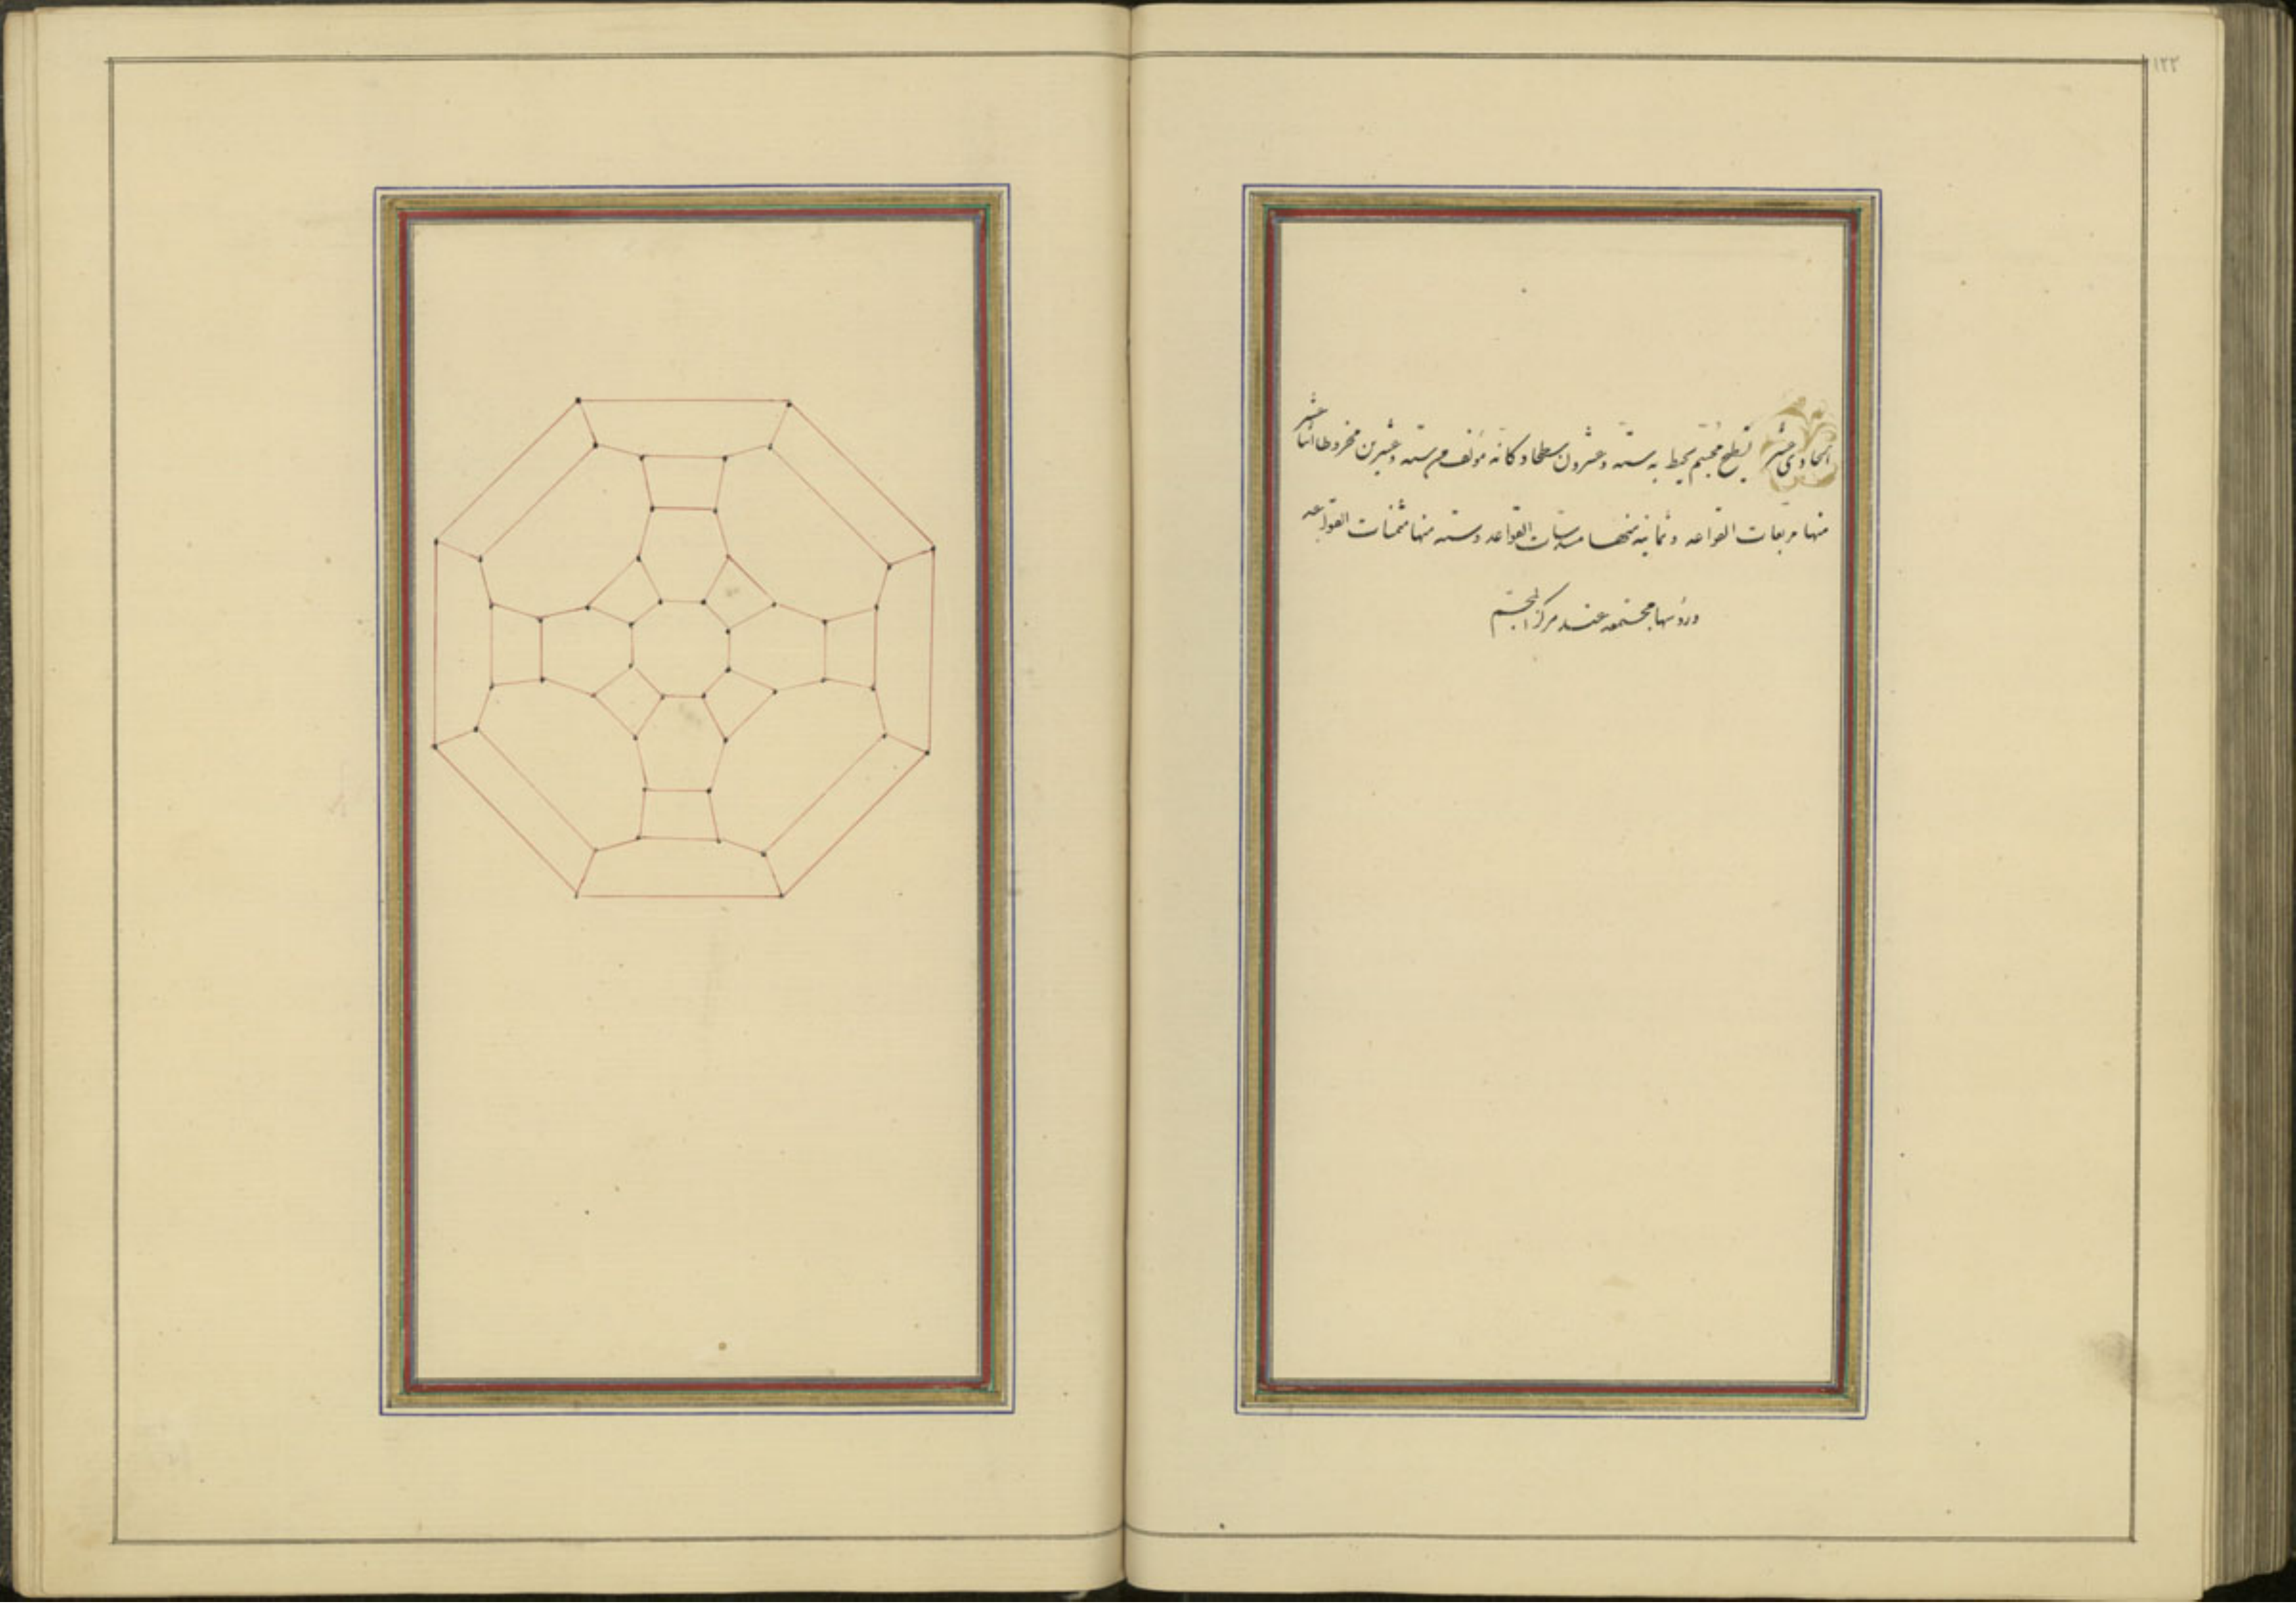 ١٢٢
الحادى عشر لسطح مجسم يحيط به ستة وعشرون سطحا وكانه مؤلف من ستة وعشرين مخروطا اثنا عشر
منها مربعات القواعد وثمانية منها مسدسات القواعد وستة منها مثمنات القواعد
ورؤسها مجتمعه عند مركز المجسم